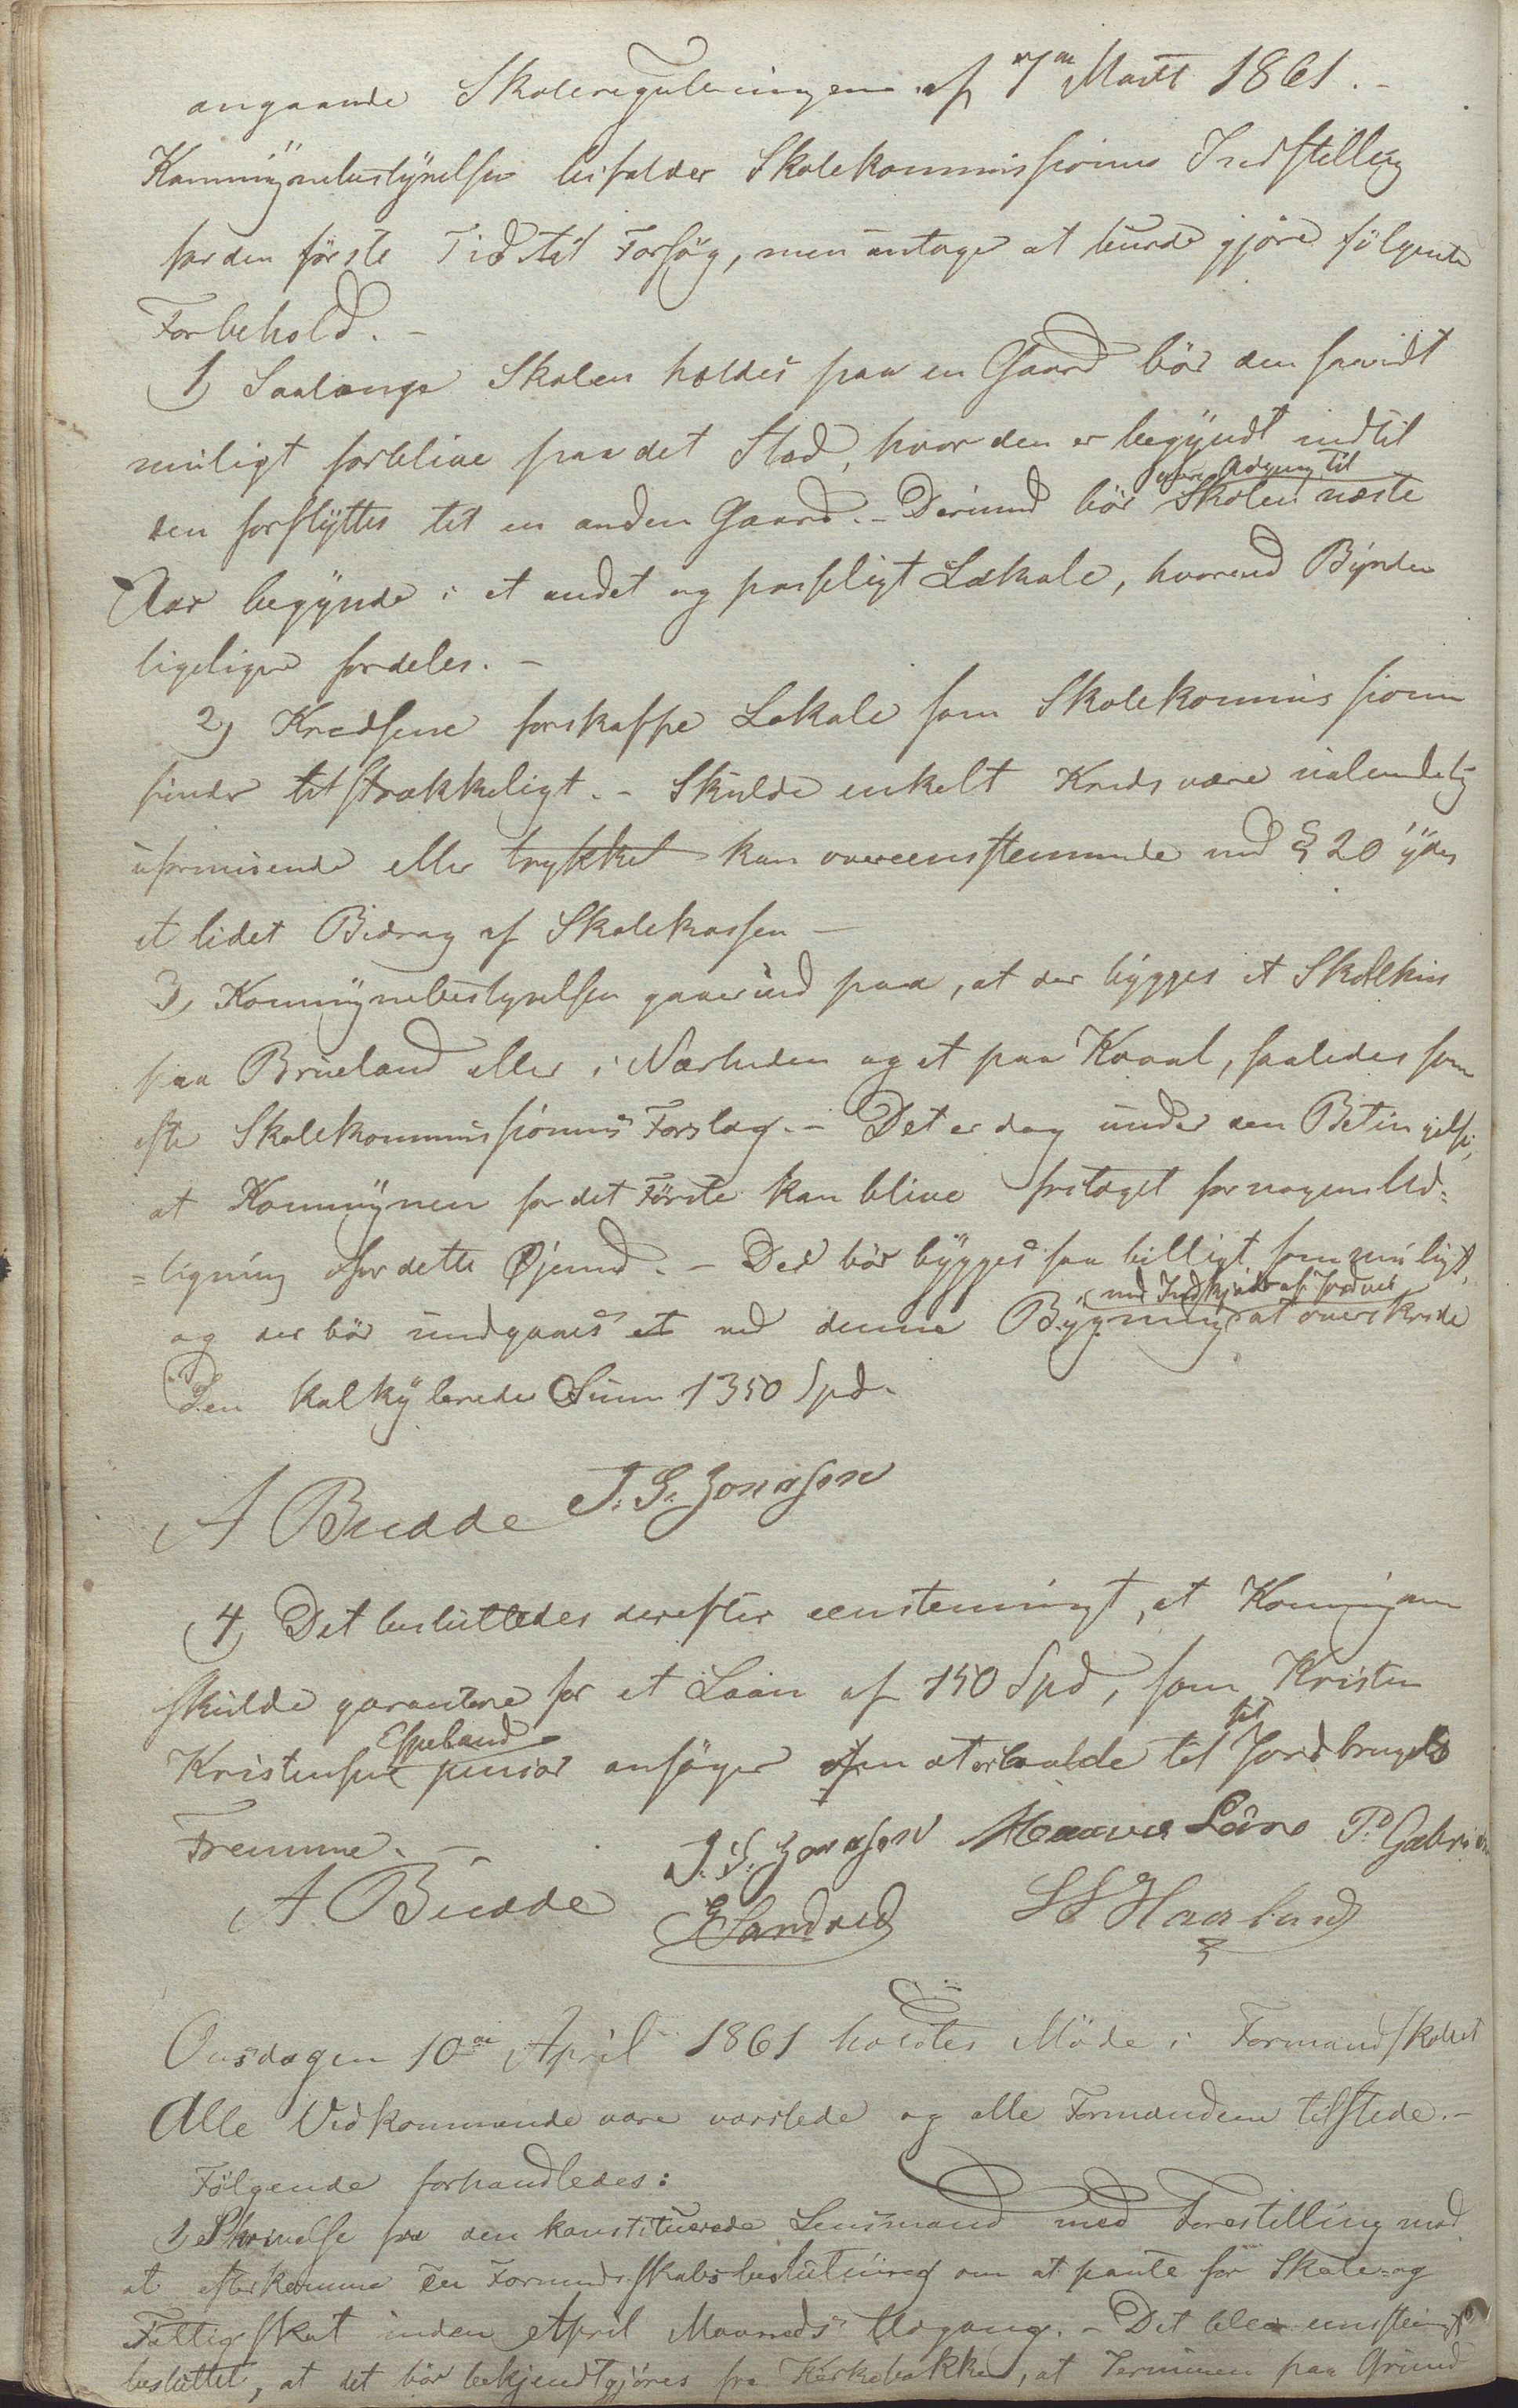 angaaende Skolereguleringen af 7de Marts 1861. -
Kommunebestyrelsen bifalder Skolekommissionens Indstilling
for den første Tid til Forsøg, men antager at burde gjøre følgende
Forbehold. -
1, Saalænge Skolen holdes paa en Gaard bør den saavidt
muligt forblive paa det Sted, hvor den er begyndt indtil
den forflyttes til en anden Gaard. - Derimod bør Skolen næste
Aar begynde i et andet og passeligt Lokale, hvorved Byrden
ligeligere fordeles. -
2, Kredsene forskaffe Lokale som Skolekommissionen
finder tilstrækkeligt. - Skulde enkelt Kreds være ualmindelig
uformuende eller trykket kan overeensstemmende med § 20 ydes
et lidet Bidrag af Skolekassen -
3, Kommunebestyrelsen gaaer ind paa, at der bygges et Skolehus
paa Brueland eller i Nærheden og et paa Kvaal, saaledes som
efter Skolekommissionens Forslag. - Det er dog under den Betingelse,
at Kommunen for det Første kan blive fritaget for nogen Ud=
=ligning for dette Øjemed. - Der bør bygges saa billigt som muligt,
med Indkjøb af Jordvei
og der bør undgaaes et ved denne Bygning at overskride
Den kalkylerede Sum 1350 Spd.
A Budde J. G. Jonassen
4, Det besluttedes derefter eenstemmigt, at Kommunen
skulde garantere for et Laan af 150 Spd, som Kristen
Espeland til
Kristensen junior ansøger om at erholde til Jordbrugets
Fremme. -
A. Budde J. G. Jonassen P. Gabriels
E Sandved S S Haaland
Onsdagen 10de April 1861 holdtes Møde i Formandskabet
Alle Vedkommende vare varslede og alle Formændene tilstede. -
Følgende forhandledes:
1, Skrivelse fra den konstituerede Lensmand med Forestilling mod
at efterkomme en Formandskabsbeslutning om at pante for Skole- og
Fattigskat inden April Maaneds Udgang. - Det blev eenstemmigt
besluttet, at det bør bekjendtgjøres fra Kirkebakken, at Terminen paa Grund